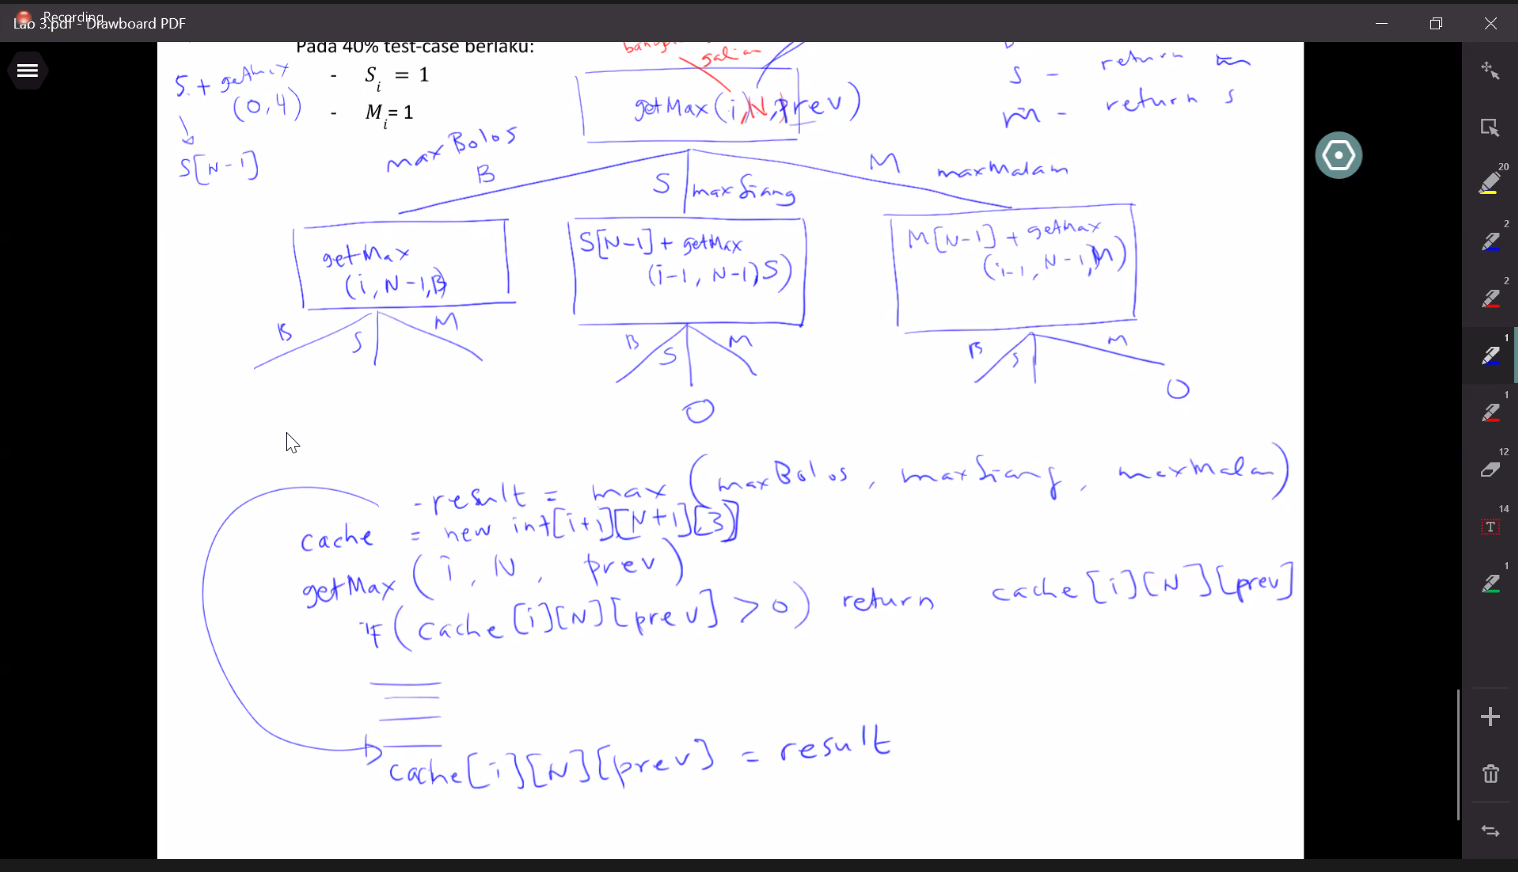 Recording
Lab 3.pdf - Drawboard PDF
Pada 40% test-case berlaku:
- S i = 1
- M i = 1
S + getMax
(0,4)
S[N-1]
galian
getMax(i,N,prev)
S - return m
m - return s
maxBolos
B
S maxSiang
M maxMalam
getMax
(i, N-1, B)
S[N-1] + getMax
(i-1, N-1, S)
M[N-1] + getMax
(i-1, N-1, M)
B S M
B S M
B S M
O
O
- result = max (maxBolos, maxSiang, maxMalam)
cache = new int[i+1][N+1][3]
getMax (i, N, prev)
if (cache[i][N][prev] > 0) return cache[i][N][prev]
cache[i][N][prev] = result
20
2
2
1
1
12
14
T
1